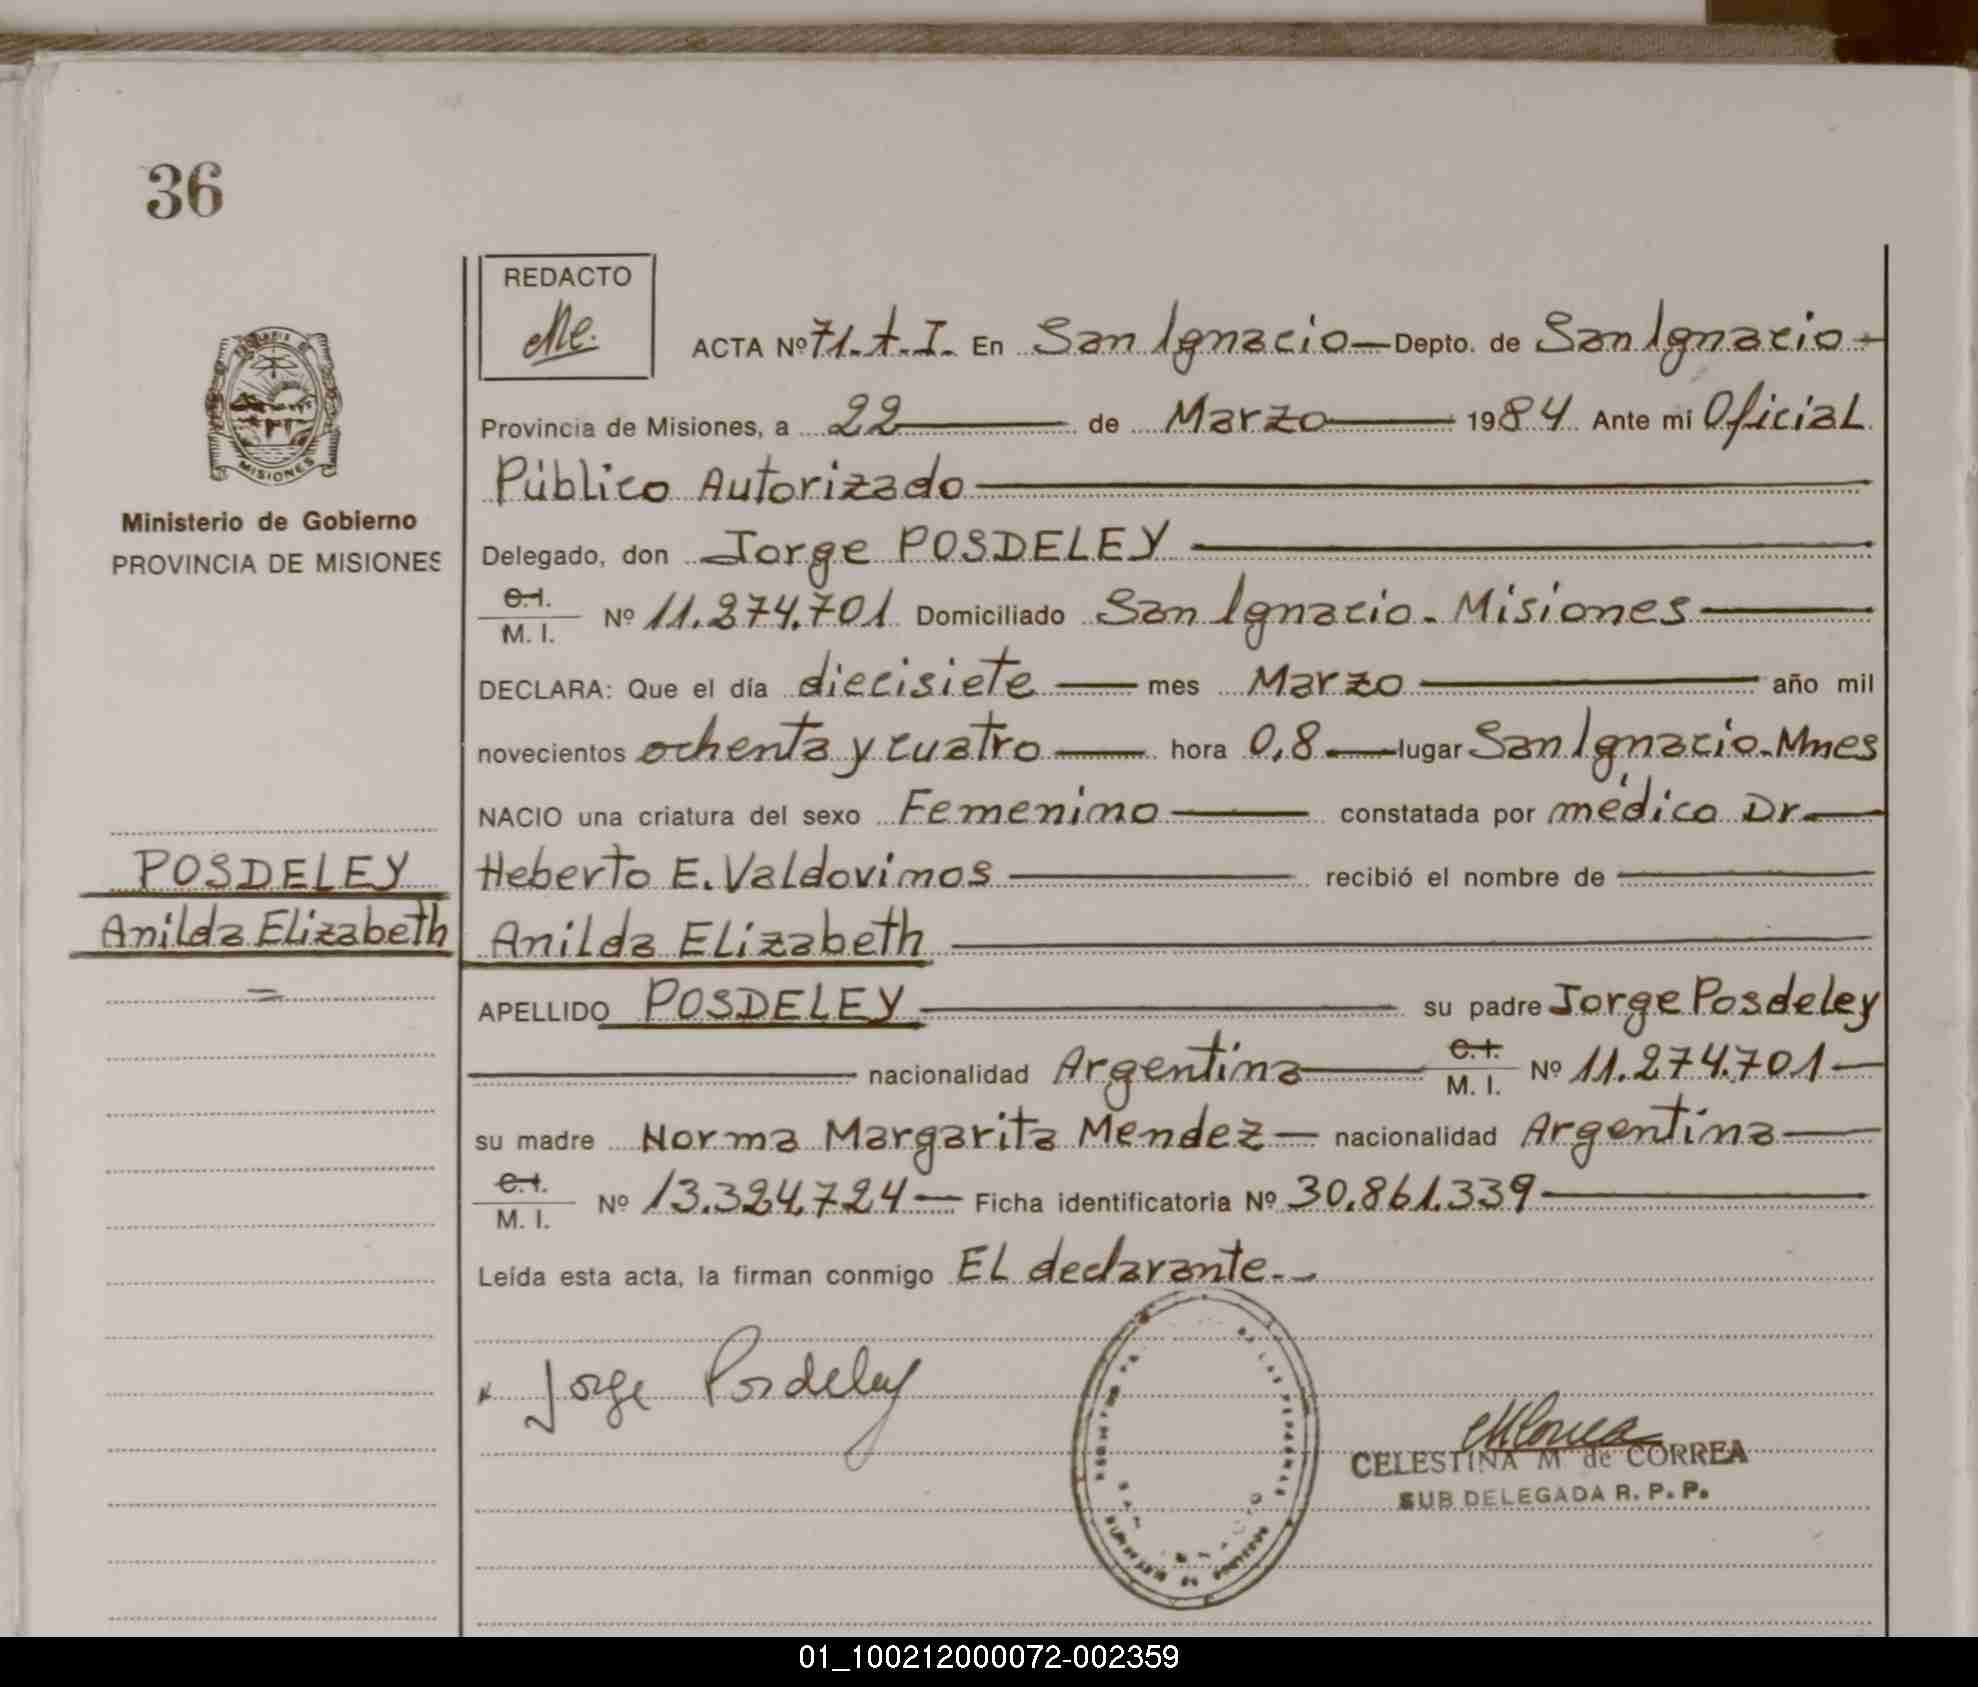 36
REDACTO
MISIONES
Ministerio de Gobierno
PROVINCIA DE MISIONES
ACTA Nº 71.-t.I. En San Ignacio — Depto. de San Ignacio -
Provincia de Misiones, a 22 — de Marzo — 1984 Ante mi Oficial
Público Autorizado —
Delegado, don Jorge POSDELEY —
C.I. / M. I. Nº 11.274.701 Domiciliado San Ignacio - Misiones —
DECLARA: Que el día diecisiete — mes Marzo — año mil
novecientos ochenta y cuatro — hora 0,8 — lugar San Ignacio - Mnes
NACIO una criatura del sexo Femenino — constatada por médico Dr —
POSDELEY
Heberto E. Valdovinos — recibió el nombre de —
Anilda Elizabeth
Anilda Elizabeth —
APELLIDO POSDELEY — su padre Jorge Posdeley
— nacionalidad Argentina — C.I. / M. I. Nº 11.274.701 —
su madre Norma Margarita Mendez — nacionalidad Argentina —
C.I. / M. I. Nº 13.324.724 — Ficha identificatoria Nº 30.861.339 —
Leída esta acta, la firman conmigo El declarante. -
Jorge Posdeley
CELESTINA M de CORREA
SUB DELEGADA R. P. P.
01_100212000072-002359